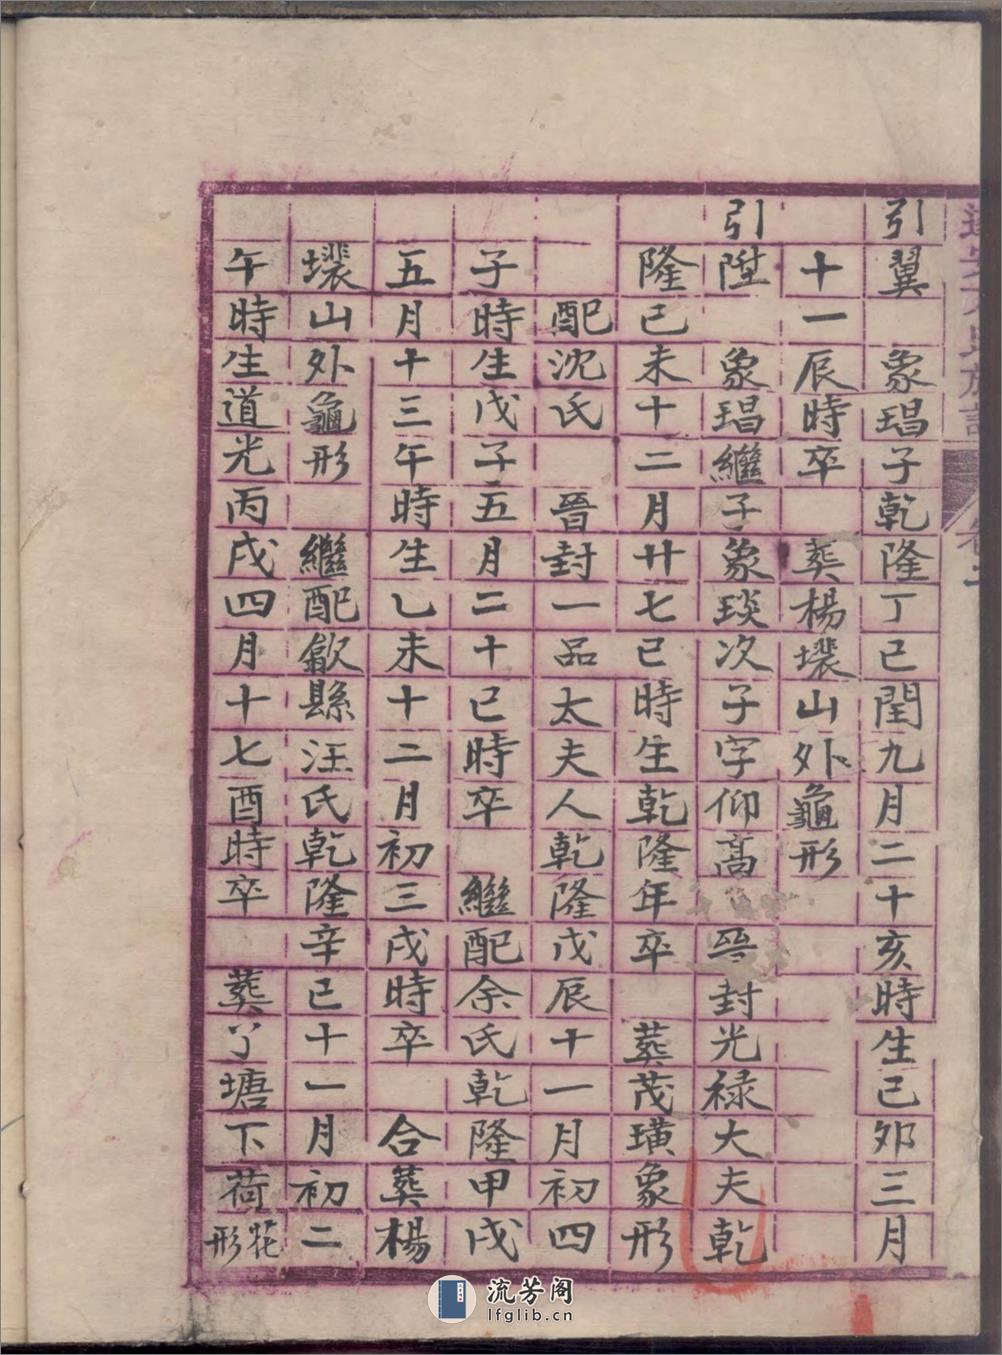 引翼　象琩子乾隆丁巳閏九月二十亥時生己卯三月
十一辰時卒　葬楊壋山外龜形
引陞　象琩繼子象琰次子字仰高　晉封光禄大夫乾
隆己未十二月廿七巳時生乾隆年卒　葬茂璜象形
配沈氏　晉封一品太夫人乾隆戊辰十一月初四
子時生戊子五月二十巳時卒　繼配余氏乾隆甲戌
五月十三午時生乙未十二月初三戌時卒　合葬楊
山外龜形　繼配歙縣汪氏乾隆辛巳十一月初二
午時生道光丙戌四月十七酉時卒　葬丫塘下荷花形
卷
流芳阁
lfglib.cn